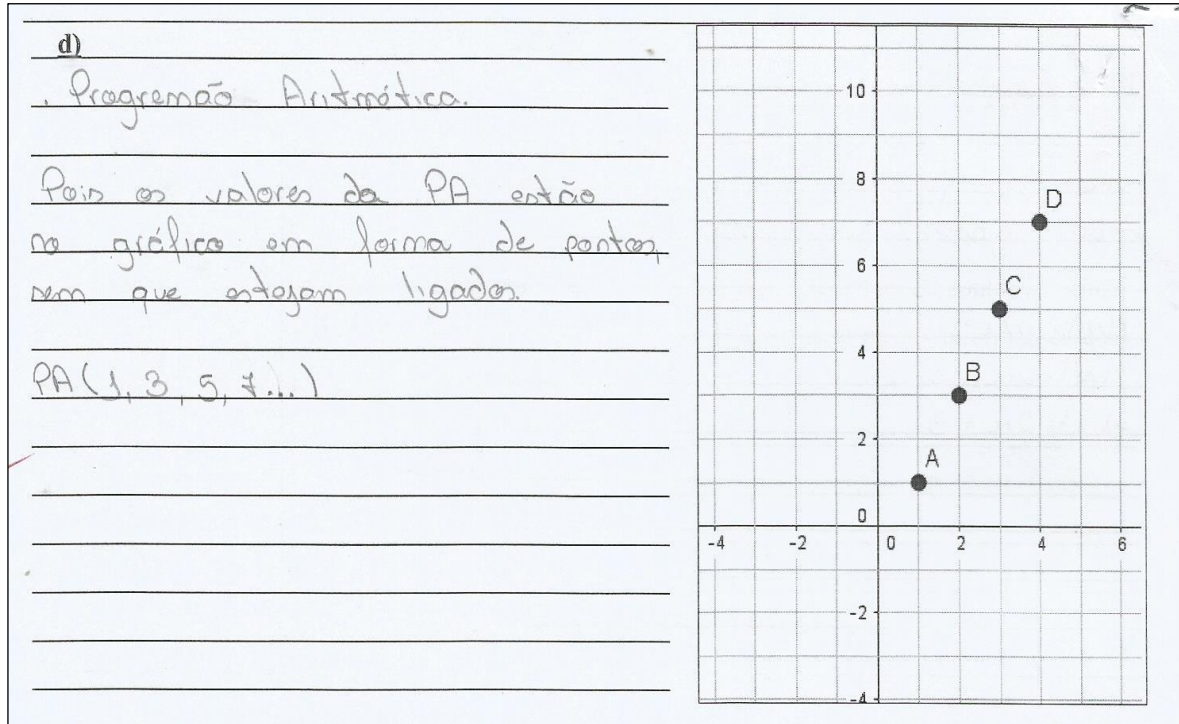 d)
. Progremão Aritmética.
Pois os valores da PA estão
no gráfico em forma de pontos,
sem que estejam ligados.
PA (1, 3, 5, 7...)
10
8
D
6
C
4
B
2
A
0
-4 -2 0 2 4 6
-2
-4